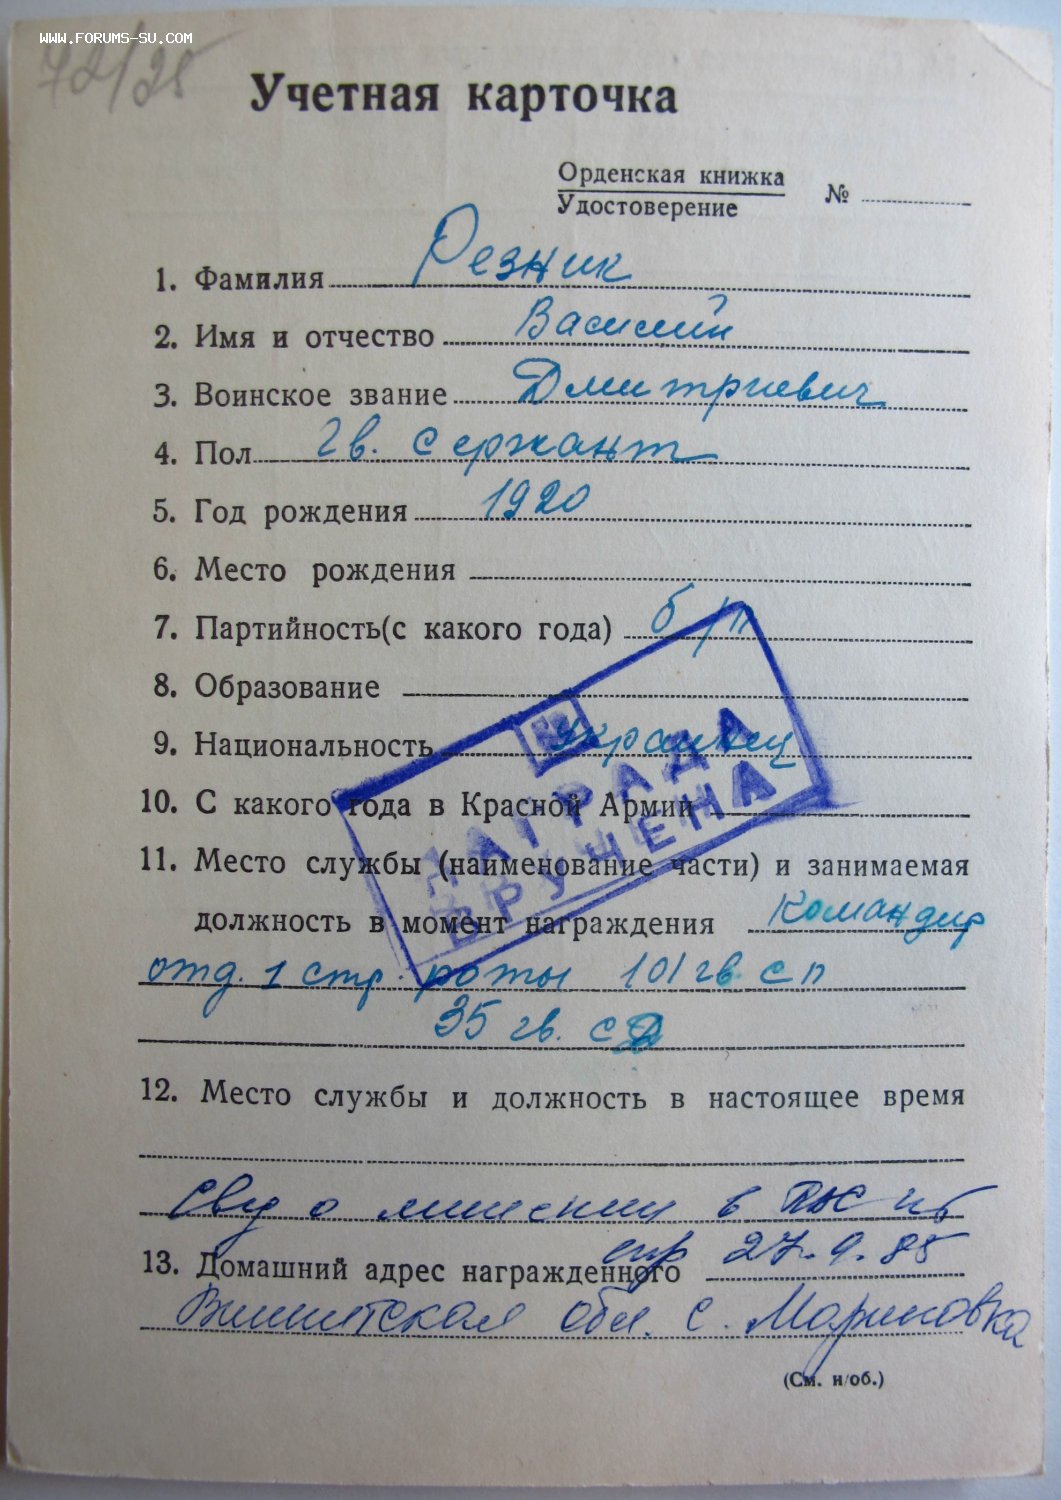 WWW.FORUMS-SU.COM
72/25
Учетная карточка
Орденская книжка
Удостоверение №
1. Фамилия Резник
2. Имя и отчество Василий
3. Воинское звание Дмитриевич
4. Пол гв. сержант
5. Год рождения 1920
6. Место рождения
7. Партийность(с какого года) б/п
8. Образование
9. Национальность украинец
10. С какого года в Красной Армии
НАГРАДА
ВРУЧЕНА
11. Место службы (наименование части) и занимаемая
должность в момент награждения Командир
отд. 1 стр. роты 101 гв. сп
35 гв. сд
12. Место службы и должность в настоящее время
о в
27.9.85
13. Домашний адрес награжденного
Винницкая обл. с. Мариновка
(См. н/об.)